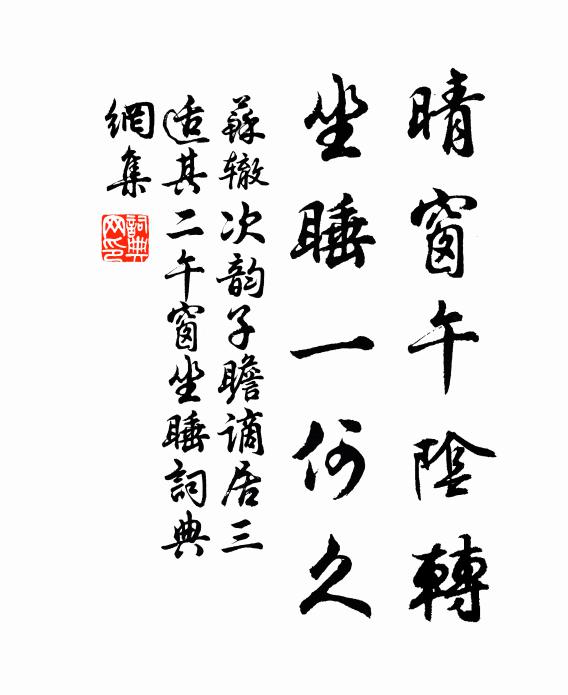 晴窗午陰轉
坐睡一何久
蘇辙次韵子瞻谪居三
适其二午窗坐睡詞典
網集
詞典
网印